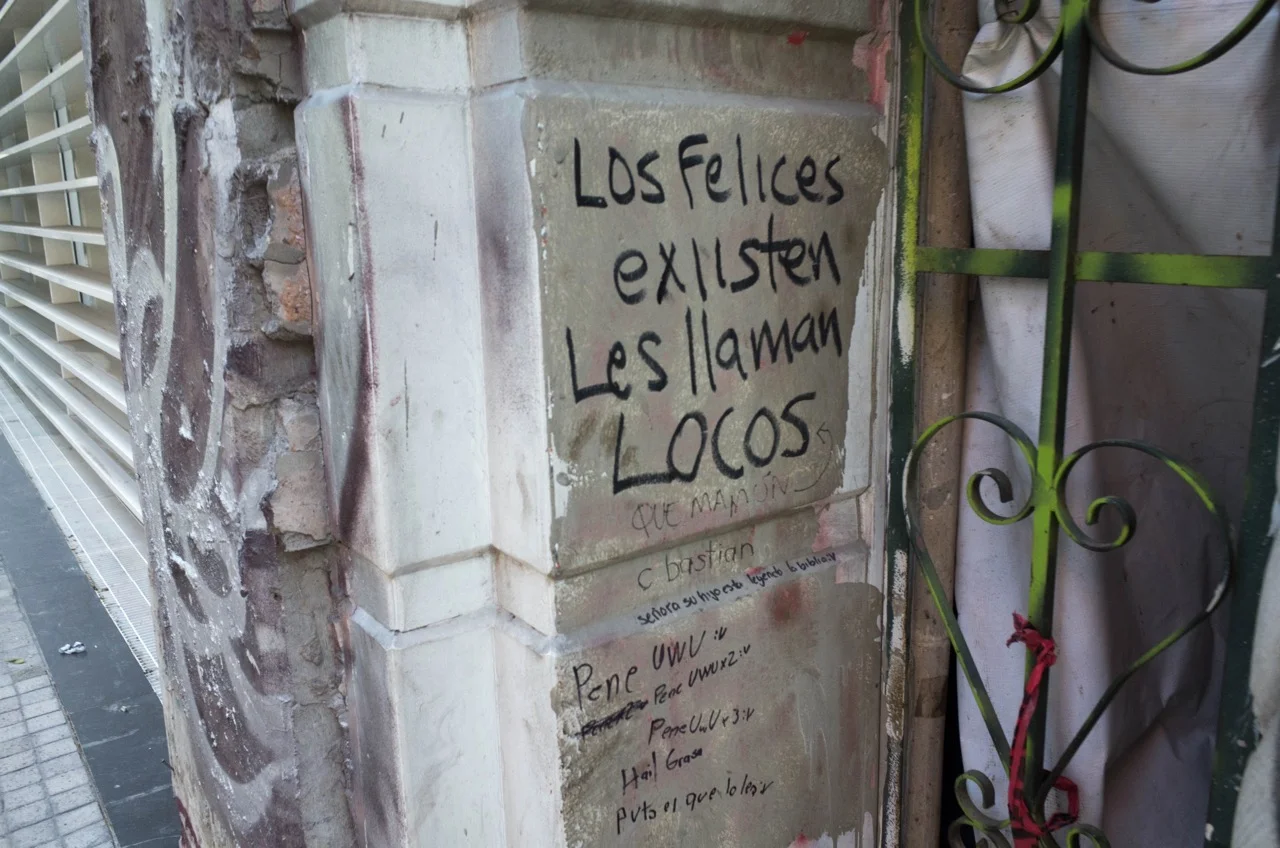 Los Felices
exiisten
Les llaman
LOCOS
QUE MAMÓN
c bastian
señora su hijo esta leyendo la biblia :v
Pene UWU :v
Pene UWUx2 :v
Pene UwU x3 :v
Hail Grasa
puto el que lo lea :v